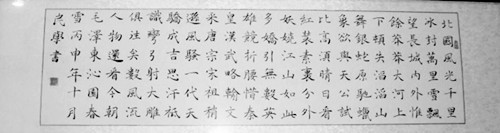 北國風光千里
冰封萬里雪飄
望長城內外惟
餘莽莽大河上
下頓失滔滔山
舞銀蛇原馳蠟
象欲與天公試
比高須晴日看
紅裝素裹分外
妖嬈江山如此
多嬌引無數英
雄競折腰惜秦
皇漢武略輸文
采唐宗宋祖稍
遜風騷一代天
驕成吉思汗祇
識彎弓射大雕
俱往矣數風流
人物還看今朝
毛澤東沁園春
雪丙申年十月
民學書